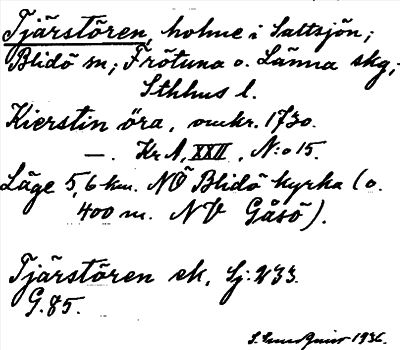 Tjärstören, holme i Saltsjön;
Blidö sn; Frötuna o. Länna skg,
Sthlms l.
Kierstin öra, omkr. 1730.
—. Kr A, XXII, N:o 15.
Läge 5,6 km. NÖ Blidö kyrka (o.
400 m. NV Gåsö).
Tjärstören ek. Sj: 233.
G. 85.
1936.